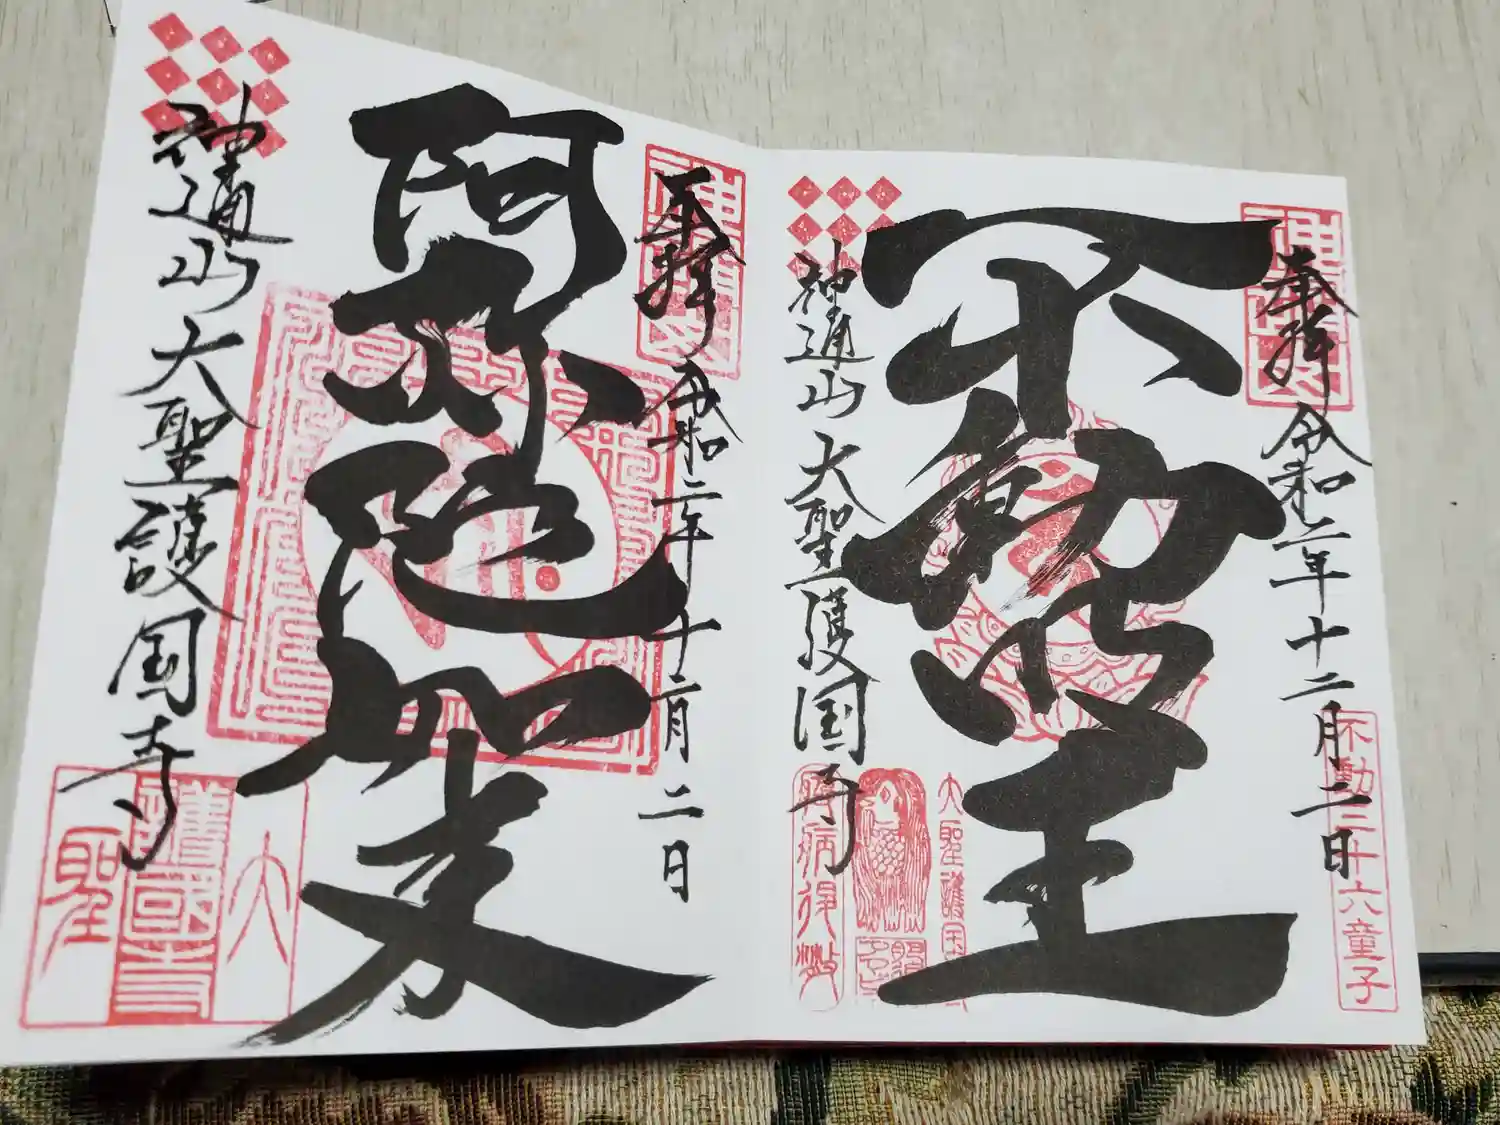 奉拝
令和二年十二月二日
不動明王
神通山
大聖護国寺
不動三十六童子
大聖護国寺
奉拝
令和二年十二月二日
阿弥陀如来
神通山
大聖護国寺
大聖
護國寺